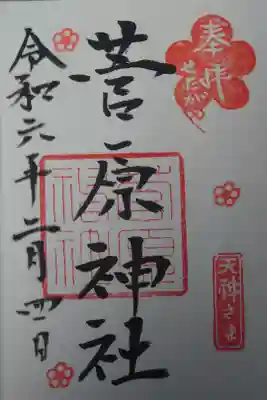 奉拝
せたがや
菅原神社
天神さま
令和六年二月四日